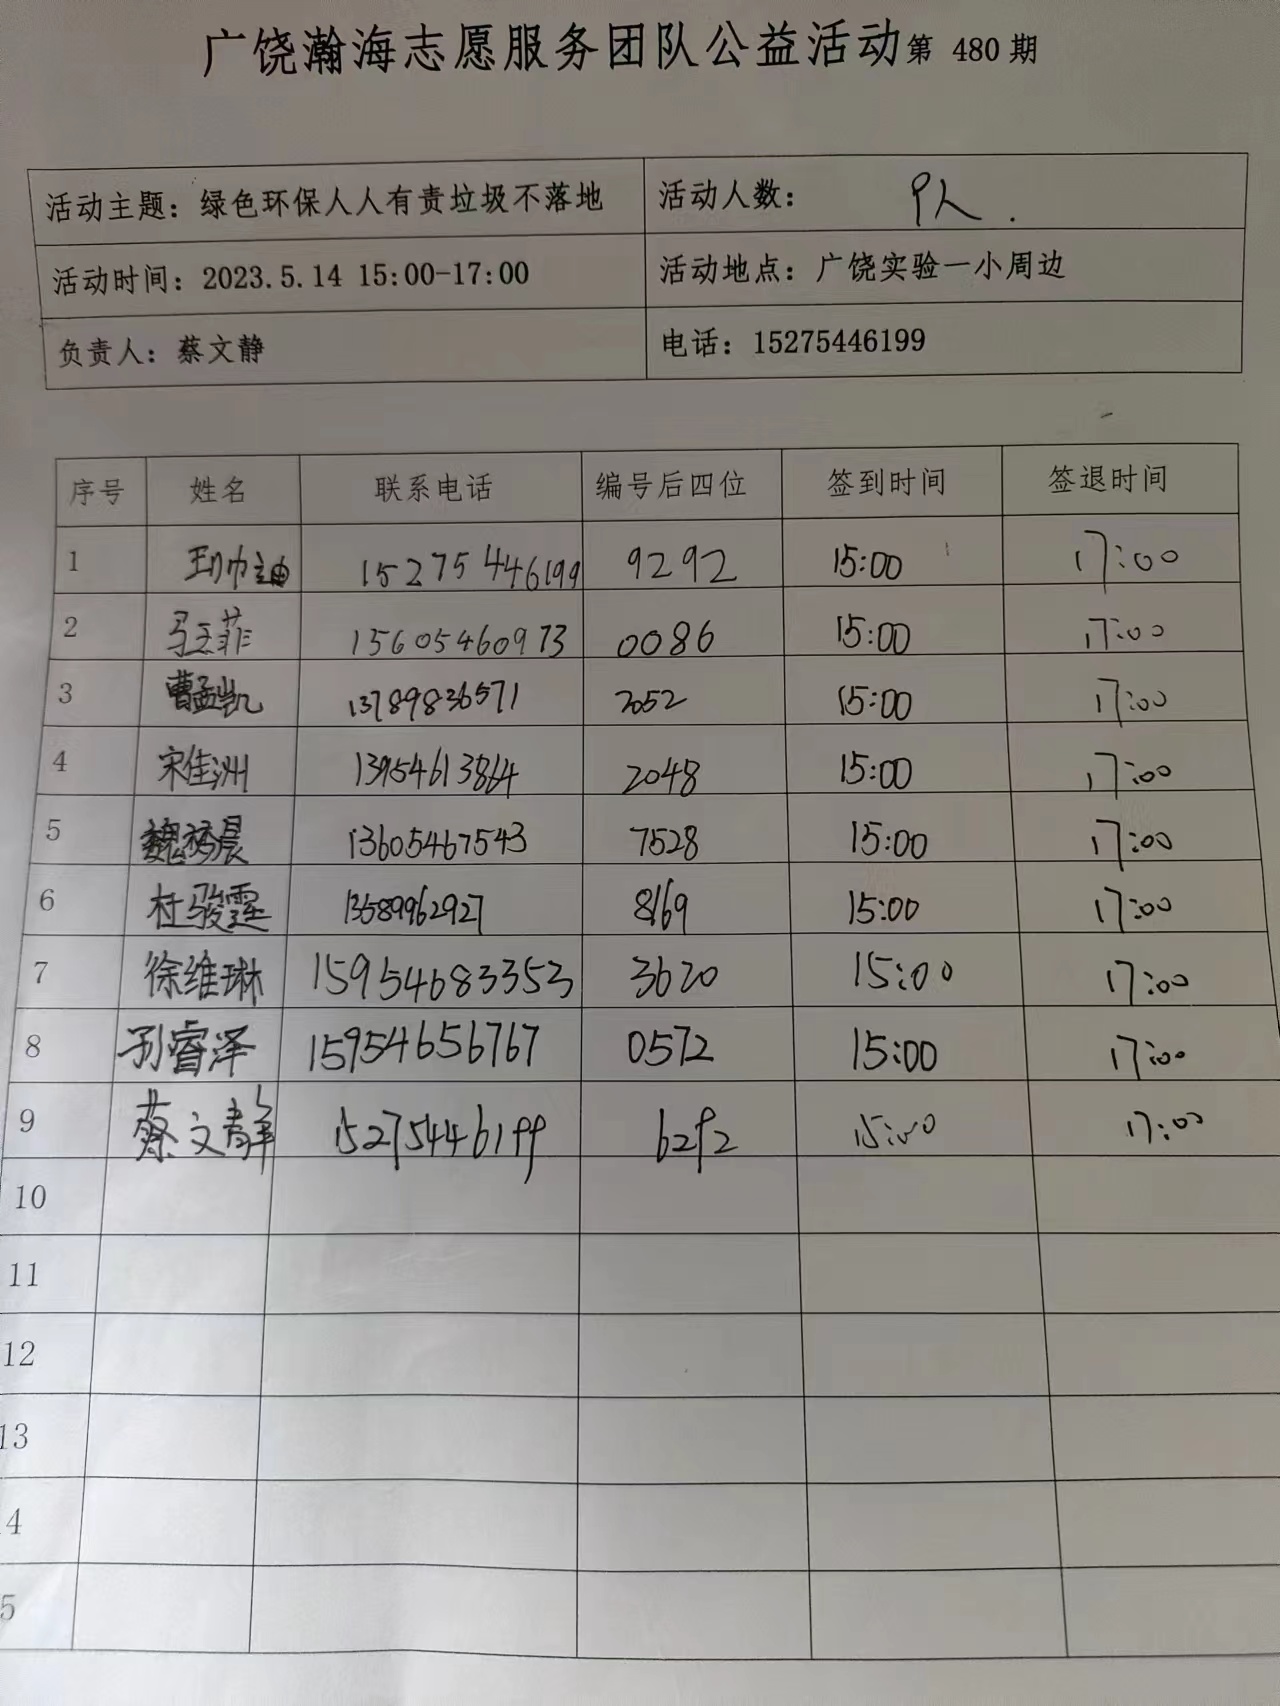 广饶瀚海志愿服务团队公益活动第 480 期
活动主题：绿色环保人人有责垃圾不落地 活动人数： 9人.
活动时间：2023.5.14 15:00-17:00 活动地点：广饶实验一小周边
负责人：蔡文静 电话：15275446199
序号 姓名 联系电话 编号后四位 签到时间 签退时间
1 15275446199 9292 15:00 17:00
2 马玉菲 15605460973 0086 15:00 17:00
3 曹孟凯 13789836571 2052 15:00 17:00
4 宋佳洲 13954613864 2048 15:00 17:00
5 魏 晨 13605467543 7528 15:00 17:00
6 杜骏霆 13589962927 8169 15:00 17:00
7 徐维琳 15954683353 3620 15:00 17:00
8 孙睿泽 15954656767 0572 15:00 17:00
9 蔡文静 15275446199 6292 15:00 17:00
10
11
12
13
4
5